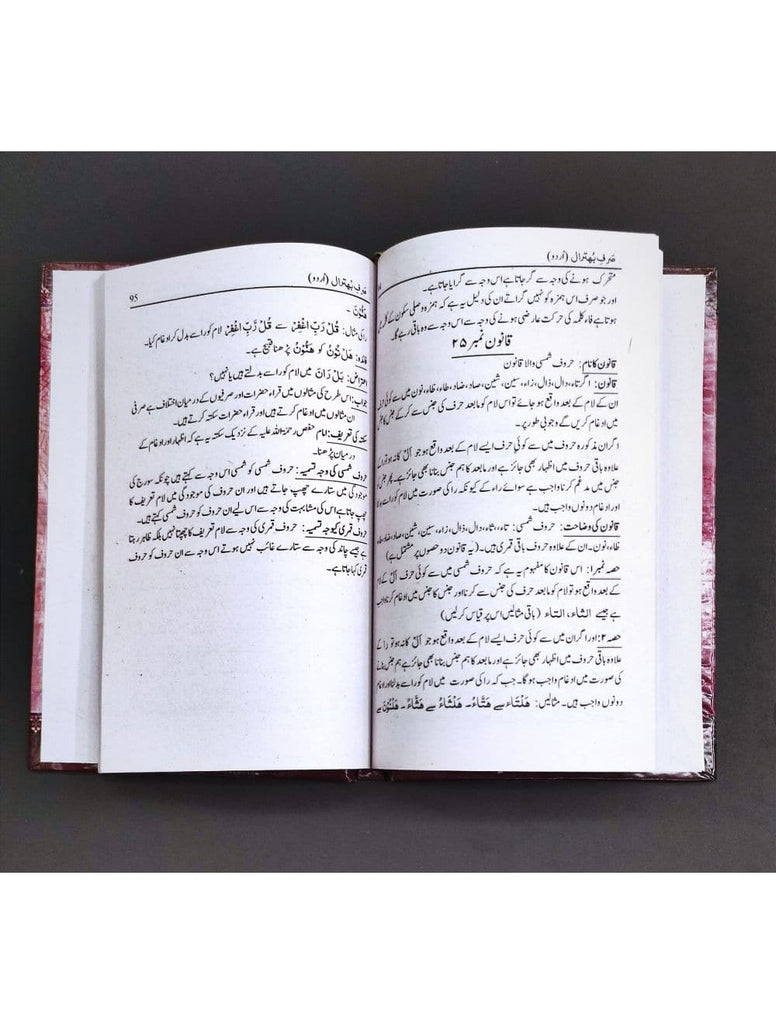 صَرفِ بُھترال (اُردو)
متحرک ہونے کی وجہ سے گر جاتا ہے اس وجہ سے گرایا جاتا ہے۔
اور جو صرف اس ہمزہ کو نہیں گراتے ان کی دلیل یہ ہے کہ ہمزہ وصلی سکون کے
ہوتا ہے فاء کلمہ کی حرکت عارضی ہونے کی وجہ سے اس وجہ سے وہ باقی رہے گا۔
قانون نمبر ۲۵
قانون کا نام: حروف شمسی والا قانون
قانون: اگر تاء، دال، ذال، زاء، سین، شین، صاد، ضاد، طاء، ظاء، نون میں سے کوئی حرف
ان کے لام کے بعد واقع ہو جائے تو اس لام کو مابعد حرف کی جنس سے کر کے جنس
میں ادغام کریں گے وجوبی طور پر۔
اگر ان مذکورہ حروف میں سے کوئی حرف ایسے لام کے بعد واقع ہو جو اَلْ کا نہ ہو تو راء کے
علاوہ باقی حروف میں اظہار بھی جائز ہے اور مابعد کا ہم جنس بنانا بھی جائز ہے۔ پھر جنس کا
جنس میں مدغم کرنا واجب ہے سوائے راء کے کیونکہ را کی صورت میں لام کو راء سے بدلنا
اور ادغام دونوں واجب ہیں۔
قانون کی وضاحت: حروف شمسی: تاء، ثاء، دال، ذال، زاء، سین، شین، صاد، ضاد، طاء،
ظاء، نون۔ ان کے علاوہ حروف باقی قمری ہیں۔ (یہ قانون دو حصوں پر مشتمل ہے)
حصہ نمبر۱: اس قانون کا مفہوم یہ ہے کہ حروف شمسی میں سے کوئی حرف اَلْ کے لام
کے بعد واقع ہو تو لام کو مابعد حرف کی جنس سے کرنا اور جنس کا جنس میں ادغام کرنا واجب
ہے جیسے الشاء، التاء (باقی مثالیں اس پر قیاس کر لیں)
حصہ ۲: اور اگر ان میں سے کوئی حرف ایسے لام کے بعد واقع ہو جو اَلْ کا نہ ہو تو را کے
علاوہ باقی حروف میں اظہار بھی جائز ہے اور مابعد کا ہم جنس بنانا بھی جائز ہے ہم جنس بنانے
کی صورت میں ادغام واجب ہوگا۔ جب کہ را کی صورت میں لام کو راء سے بدلنا اور ادغام
دونوں واجب ہیں۔ مثالیں: هَلْتَاء سے هَتَّاءُ۔ هَلْثَاءُ سے هَثَّاءُ۔ هَلْنُوْنُ سے
صَرفِ بُھترال (اُردو) 95
هَنُّوْنُ۔
را کی مثال: قُلْ رَبِّ اغْفِرْ سے قُلْ رَّبِّ اغْفِرْ لام کو راء سے بدل کر ادغام کیا۔
فائدہ: هَلْ نُوْنُ کو هَنُّوْنُ پڑھنا قبیح ہے۔
اعتراض: بَلْ رَانَ میں لام کو راء سے بدلتے ہیں یا نہیں؟
جواب: اس طرح کی مثالوں میں قراء حضرات اور صرفیوں کے درمیان اختلاف ہے صرفی
ان مثالوں میں ادغام کرتے ہیں اور قراء حضرات سکتہ کرتے ہیں۔
سکتہ کی تعریف: امام حفص رحمۃ اللہ علیہ کے نزدیک سکتہ یہ ہے کہ اظہار اور ادغام کے
درمیان پڑھنا۔
حروف شمسی کی وجہ تسمیہ: حروف شمسی کو شمسی اس وجہ سے کہتے ہیں چونکہ سورج کی
موجودگی میں ستارے چھپ جاتے ہیں اور ان حروف کی موجودگی میں لام تعریف کا
چھپ جاتا ہے اس کی مشابہت کی وجہ سے اس لیے ان حروف کو حروف شمسی کہتے ہیں۔
حروف قمری کی وجہ تسمیہ: حروف قمری کی وجہ سے لام تعریف کا چھپتا نہیں بلکہ ظاہر رہتا
ہے جیسے چاند کی وجہ سے ستارے غائب نہیں ہوتے اس وجہ سے ان حروف کو حروف
قمری کہا جاتا ہے۔